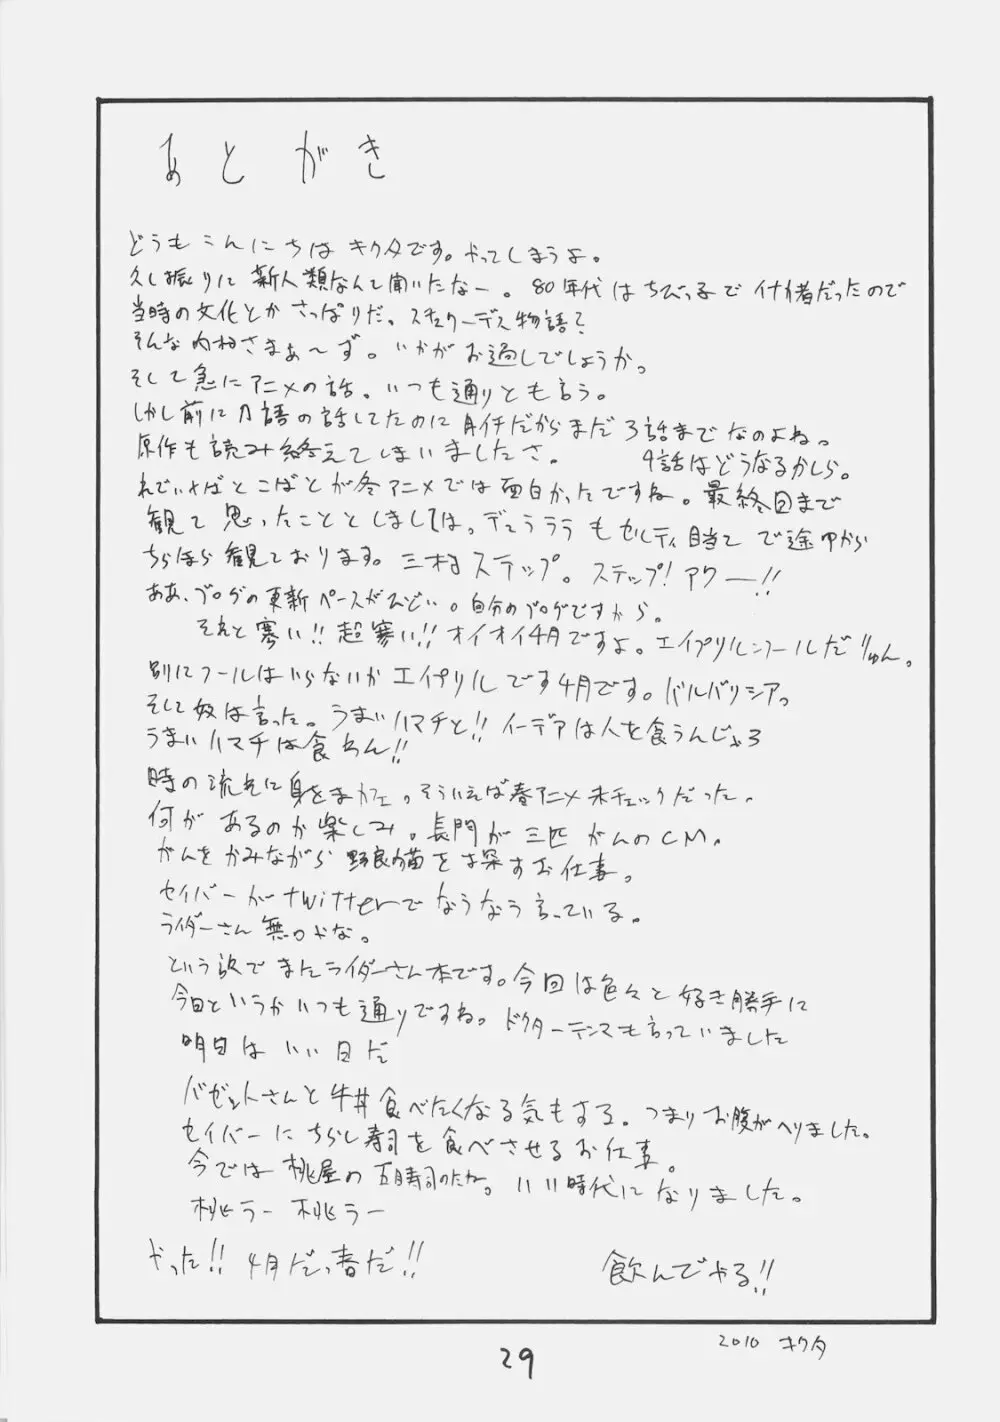 あとがき
どうもこんにちは キクタです。やってしまうよ。
久し振りに新人類なんて聞いたなー。80年代はちびっ子で
当時の文化とかさっぱりだ。スチュワーデス物語？
そんな内村さまぁ〜ず。いかがお過しでしょうか。
そして急にアニメの話。いつも通りとも言う。
しかし前に刀語の話してたのに月イチだからまだ3話までなのよね。
原作も読み終えてしまいましたさ。 4話はどうなるかしら。
れでぃ×ばとこばとが冬アニメでは面白かったですね。最終回まで
観て思ったこととしましては。デュラララもセルティ目当てで途中から
ちらほら観ております。三村ステップ。ステップ！アウー!!
ああ、ブログの更新ペースがひどい。自分のブログですから。
それと寒い!!超寒い!!オイオイ4月ですよ。エイプリルフールだ
別にフールはいらないかエイプリルです4月です。バルバリシアっ
そして奴は言った。うまいハマチと!!イーデアは人を食うんじゃろ
うまいハマチは食わん!!
時の流れに身をまカフェ。そういえば春アニメ未チェックだった。
何があるのか楽しみ。長門が三匹がんのCM。
がんをかみながら野良猫を探すお仕事。
セイバーがtwitterでなうなう言っている。
ライダーさん無口やな。
という訳でまたライダーさん本です。今回は色々と好き勝手に
今日というかいつも通りですね。ドクターテンマも言っていました
明日はいい日だ
バゼットさんと牛丼食べたくなる気もする。つまりお腹がへりました。
セイバーにちらし寿司を食べさせるお仕事。
今では桃屋の五目寿司のたね。いい時代になりました。
桃ラー 桃ラー
やった!!4月だっ春だ!!
飲んでやる!!
2010 キクタ
29